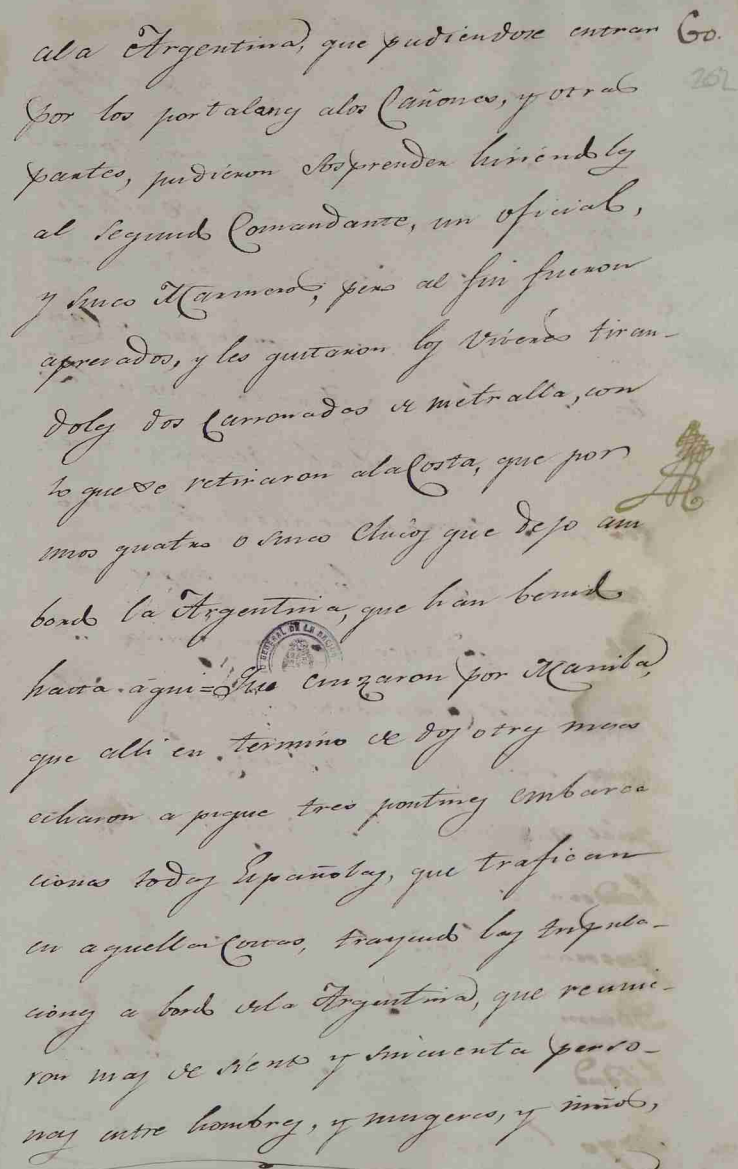 ala Argentina, que pudiendose entrar 60.
202
por los portalans alos Cañones, y otras
partes, pudieron sosprender hiriendols
al segundo Comandante, un oficial,
y sinco Marineros, pero al fin fueron
apresados, y les quitaron los Viveres tiran-
doles dos Carronadas de metralla, con
lo que se retiraron alaCosta, que por
unos quatro o sinco Chicos que dejo am
bordo la Argentina, que han benido
hasta aqui = Que cruzaron por Manila,
que alli en termino de dos otres meses
echaron a pique tres pontines embarca
ciones todas Españolas, que trafican
en aquellas Costas, trayendo las tripula-
ciones a bordo dela Argentina, que reuni-
ron mas de siento y sincuenta perso-
nas entre hombres, y mugeres, y niños,
GENERAL DE LA